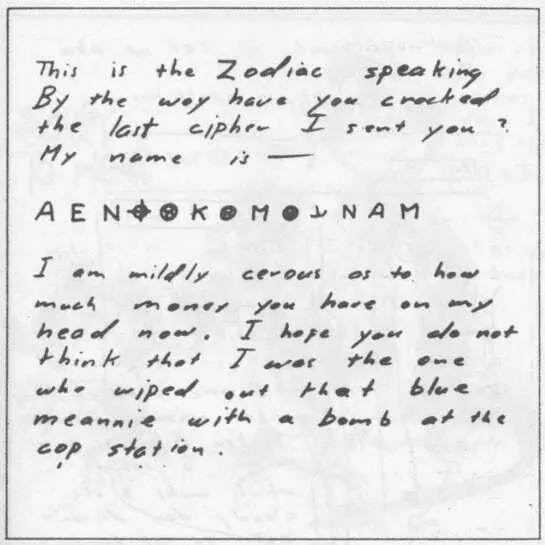 This is the Zodiac speaking
By the way have you cracked
the last cipher I sent you?
My name is —
A E N ⌖ ⊗ K ⊗ M ⊗ ⅃ N A M
I am mildly cerous as to how
much money you have on my
head now. I hope you do not
think that I was the one
who wiped out that blue
meannie with a bomb at the
cop station.